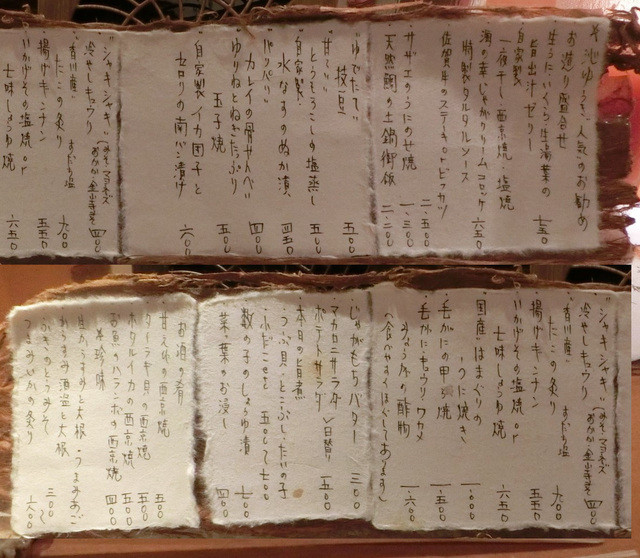 そ池ゆうき、人気のお勧め
お造り盛合せ
生うに・いくら・生湯葉の
旨出汁ゼリー 七五〇
自家製
一夜干し・西京焼・塩焼
海の幸じゃがクリームコロッケ
特製タルタルソース 六五〇
佐賀牛のステーキ 二.五〇〇
サザエのうにのせ焼 一.三〇〇
天然鯛の土鍋御飯 二.二〇〇
"ゆでたて"
枝豆 五〇〇
"甘〜い"
とうもろこしの塩蒸し 五〇〇
"自家製"
水なすのぬか漬 四五〇
"パリパリ"
カレイの骨せんべい 四〇〇
ゆりねとねぎたっぷり
玉子焼 五〇〇
自家製イカ団子と
セロリの南バン漬け 六〇〇
"シャキシャキ"
冷やしキュウリ (みそ・マヨネーズ おかか・金山寺みそ) 四〇〇
"香川産"
たこの炙り すだち塩 九〇〇
揚げギンナン 五五〇
いかげその塩焼 or
七味しょうゆ焼 六五〇
"シャキシャキ"
冷やしキュウリ (みそ・マヨネーズ おかか・金山寺みそ) 四〇〇
"香川産"
たこの炙り すだち塩 九〇〇
揚げギンナン 五五〇
いかげその塩焼 or
七味しょうゆ焼 六五〇
国産はまぐりの
うに焼き 一.〇〇〇
毛がにの甲ら焼 一.五〇〇
毛がに・キュウリ・ワカメ
みょうがの酢物 一.六〇〇
(食べやすくほぐしてあります)
じゃがもちバター 三〇〇
マカロニサラダ
ポテトサラダ 〉日替り 五五〇
本日の旨煮
つぶ貝・とこぶし・たいの子
ふだこなど 五〇〇〜七〇〇
数の子のしょうゆ漬 七〇〇
菜の葉のお浸し 四〇〇
お酒の肴
甘えびの西京焼 五〇〇
タイラギ貝の西京焼 五〇〇
ホタルイカの西京焼 五〇〇
のハランボの西京焼 四〇〇
珍味
生からすみと大根・うまみあご
からすみ酒盗と大根
ふきのとうみそ 三〇〇〜
うまみいかの炙り 六〇〇